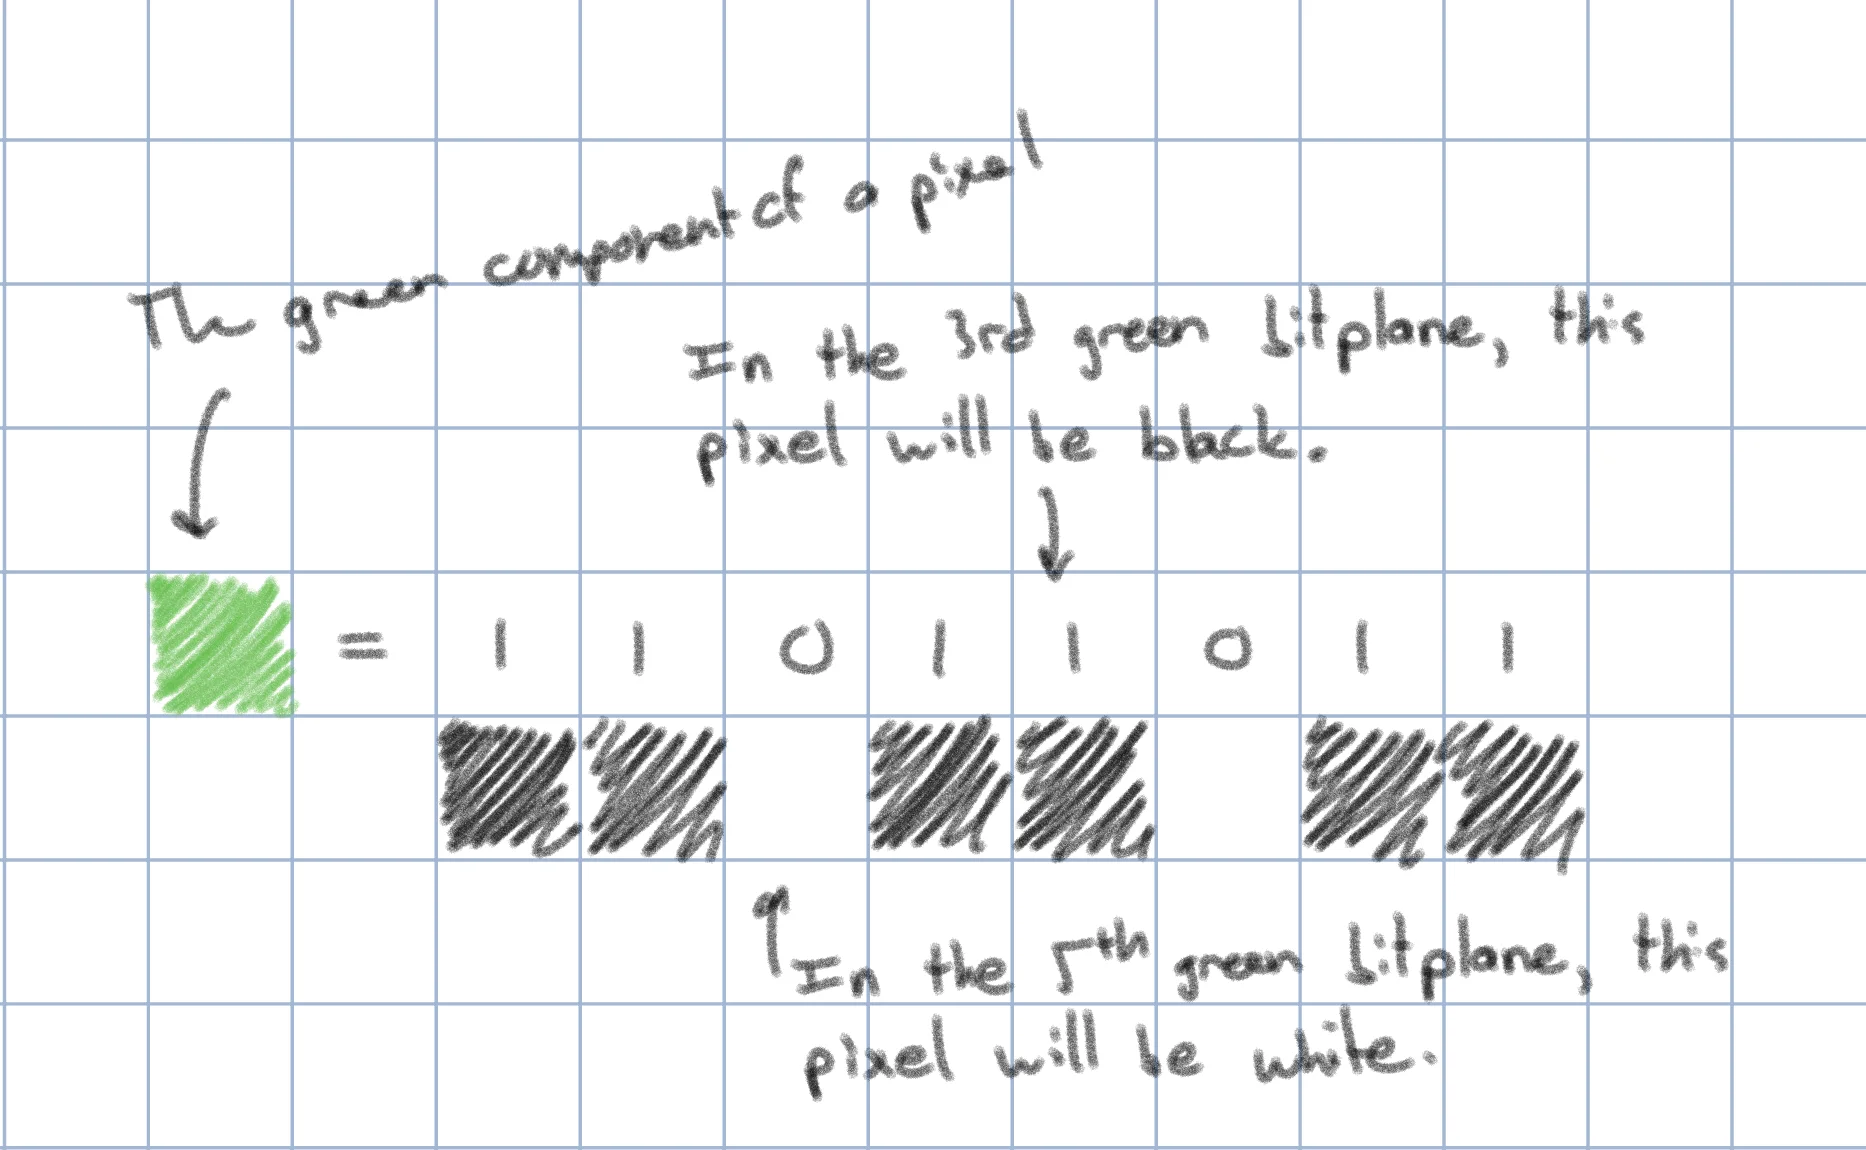 Th green component of a pixel
In the 3rd green bitplane, this
pixel will be black.
= 1 1 0 1 1 0 1 1
In the 5th green bitplane, this
pixel will be white.